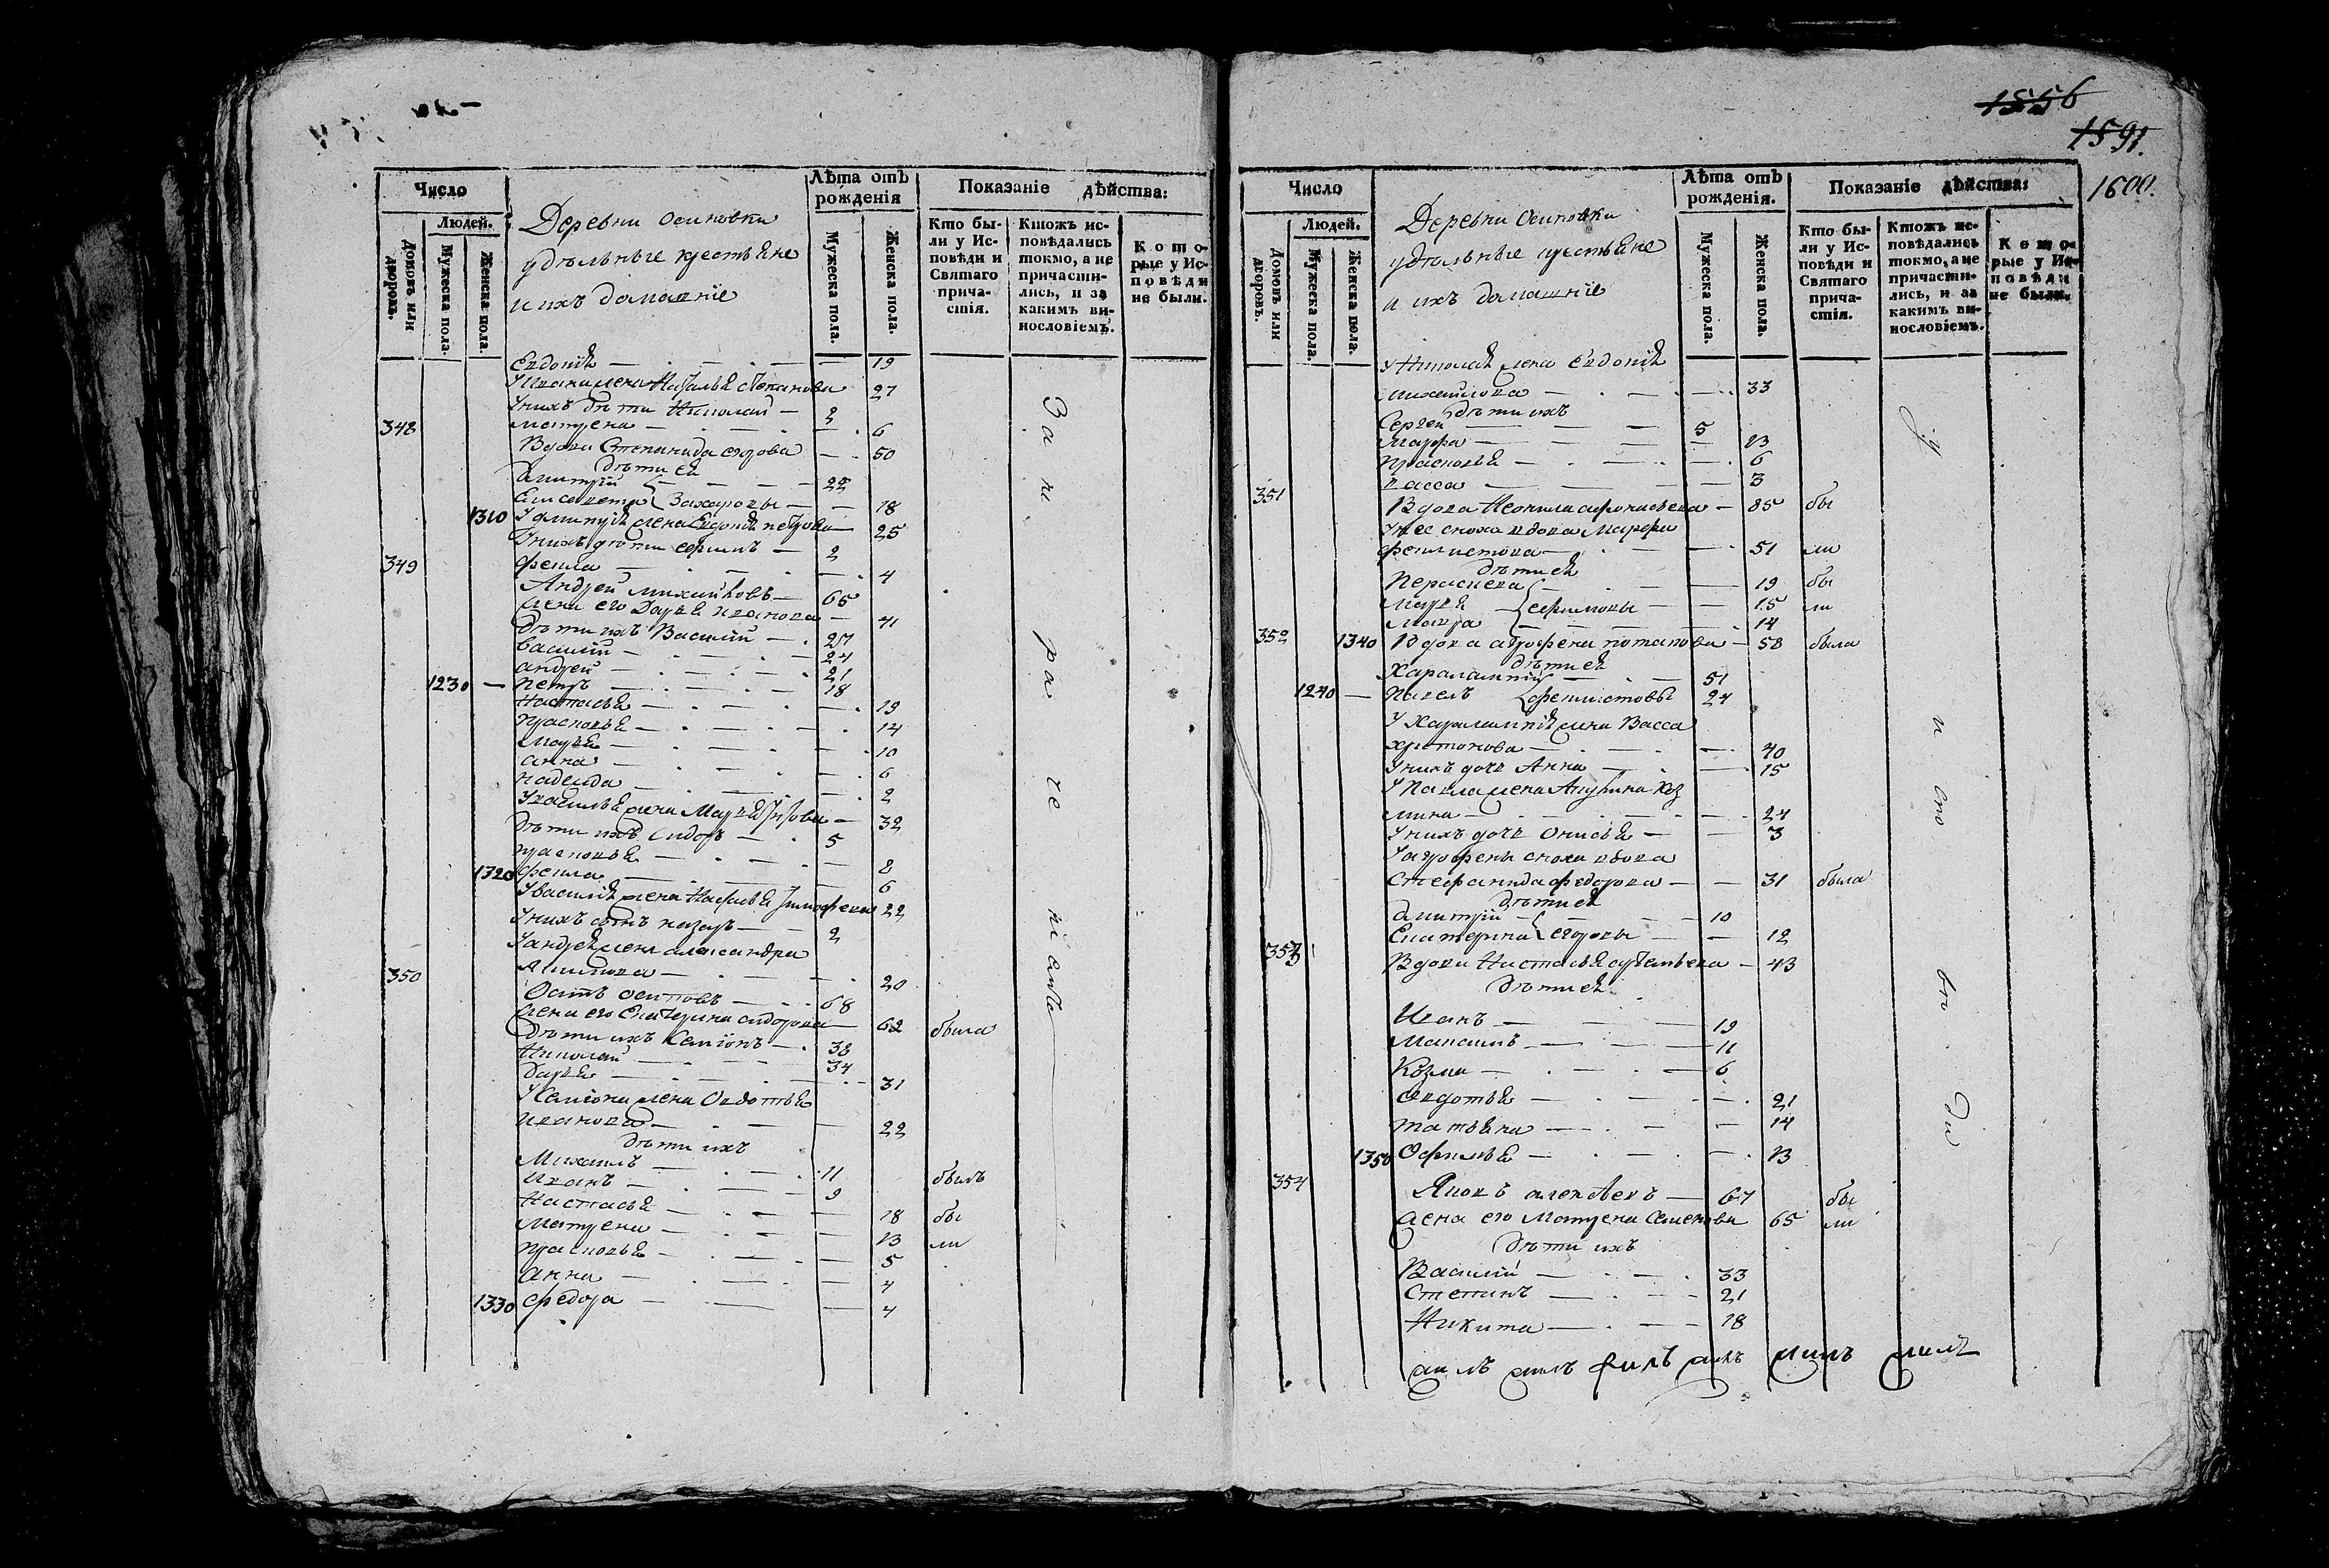 1556
1591.
1600.
Число
Людей.
Домовъ или дворовъ.
Мужеска пола.
Женска пола.
Деревни Осиновки
удѣльные крестьяне
и ихъ домашніе
Лѣта отъ рожденія
Мужеска пола.
Женска пола.
Показаніе дѣйства:
Кто бы-
ли у Ис-
повѣди и
Святаго
прича-
стія.
Ктожъ ис-
повѣдались
токмо, а не
причасти-
лись, и за
какимъ ви-
нословіемъ.
Кото-
рые у Ис-
повѣди
не были.
Евдокія 19
У Ивана жена Наталья Степанова 27
У нихъ дѣти Николай 2
348 Матрена 6
Вдова Степанида Егорова 50
дѣти ея
Дмитрій 22
Елисавета Захаровы 18
1310 У Дмитрія жена Евдокія Петрова 25
У нихъ дѣти Ефимъ 2
349 Фекла 4
Андрей 65
Жена его Дарья Иванова 41
Дѣти ихъ Василій 27
Василій 24
Андрей 21
1230 Петръ 18
Настасья 19
Прасковья 14
Марья 10
Анна 6
Надежда 2
У Василья жена Марья 32
Дѣти ихъ Сидоръ 5
Прасковья 8
1320 Фекла 6
У Василія жена Тимофеева 22
У нихъ сынъ Назаръ 2
У Андрея жена Александра
20
350 Осипъ Осиповъ 68
Жена его Екатерина Сидорова 62 была
Дѣти ихъ Семіонъ 38
Николай 34
Дарья 31
У Семіона жена Овдотья
Иванова 22
дѣти ихъ
Михаилъ 11 былъ
Иванъ 9
Настасья 18 бы
Матрена 13 ли
Прасковья 5
Анна 4
1330 Федора 4
За не ра че ніемъ
Число
Людей.
Домовъ или дворовъ.
Мужеска пола.
Женска пола.
Деревни Осиновки
удѣльные крестьяне
и ихъ домашніе
Лѣта отъ рожденія.
Мужеска пола.
Женска пола.
Показаніе дѣйства:
Кто бы-
ли у Ис-
повѣди и
Святаго
прича-
стія.
Ктожъ ис-
повѣдались
токмо, а не
причасти-
лись, и за
какимъ ви-
нословіемъ.
Кото-
рые у Ис-
повѣди
не были.
У Николая жена Евдокія
Михайлова 33
дѣти ихъ
Сергей 5
Марфа 13
Прасковья 6
Васса 3
351 Вдова Неонила Афонасьева 85 бы
У нее сноха вдова Марфа
Феклистова 51 ли
дѣти ея
19 бы
Марья Ефимовы 15 ли
14
352 1340 Вдова Агрофена Потапова 58 была
дѣти ея
Харалампій 51
1240 Павелъ Феклистовы 24
У Харалампія жена Васса
40
У нихъ дочь Анна 15
У Павла жена Акулина Коз
мина 24
У нихъ дочь Онисья 3
У Агрофены сноха вдова
Стефанида Федорова 31 была
дѣти ея
Дмитрій 10
Екатерина Егоровы 12
353 Вдова Настасья 43
дѣти ея
Иванъ 19
Максимъ 11
Козма 6
Авдотья 21
Татьяна 14
1350 Офимья 13
354 Яковъ 67 бы
Жена его Матрена Семенова 65 ли
дѣти ихъ
Василій 33
Степанъ 21
Никита 18